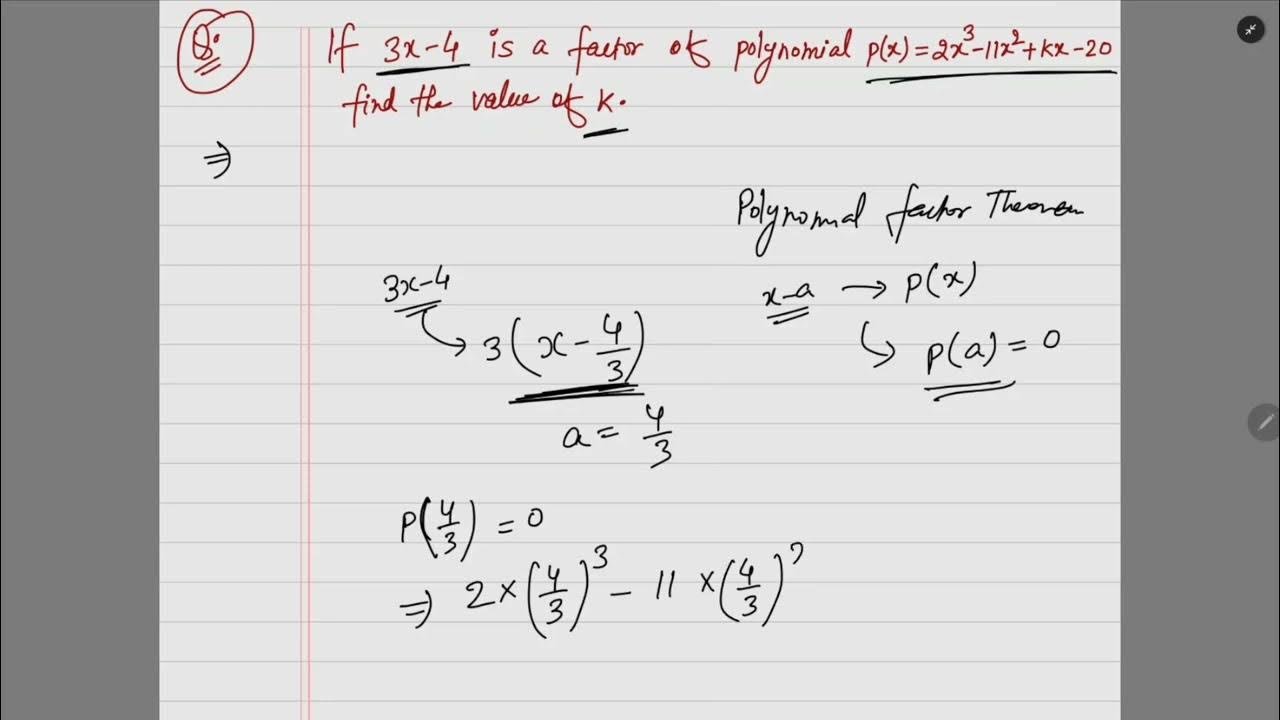 Q. If 3x-4 is a factor of polynomial p(x)=2x³-11x²+kx-20
find the value of k.
⇒
Polynomial factor Theorem
3x-4
x-a → p(x)
↳ 3(x - 4/3)
↳ p(a) = 0
a = 4/3
P(4/3) = 0
⇒ 2×(4/3)³ - 11 ×(4/3)²